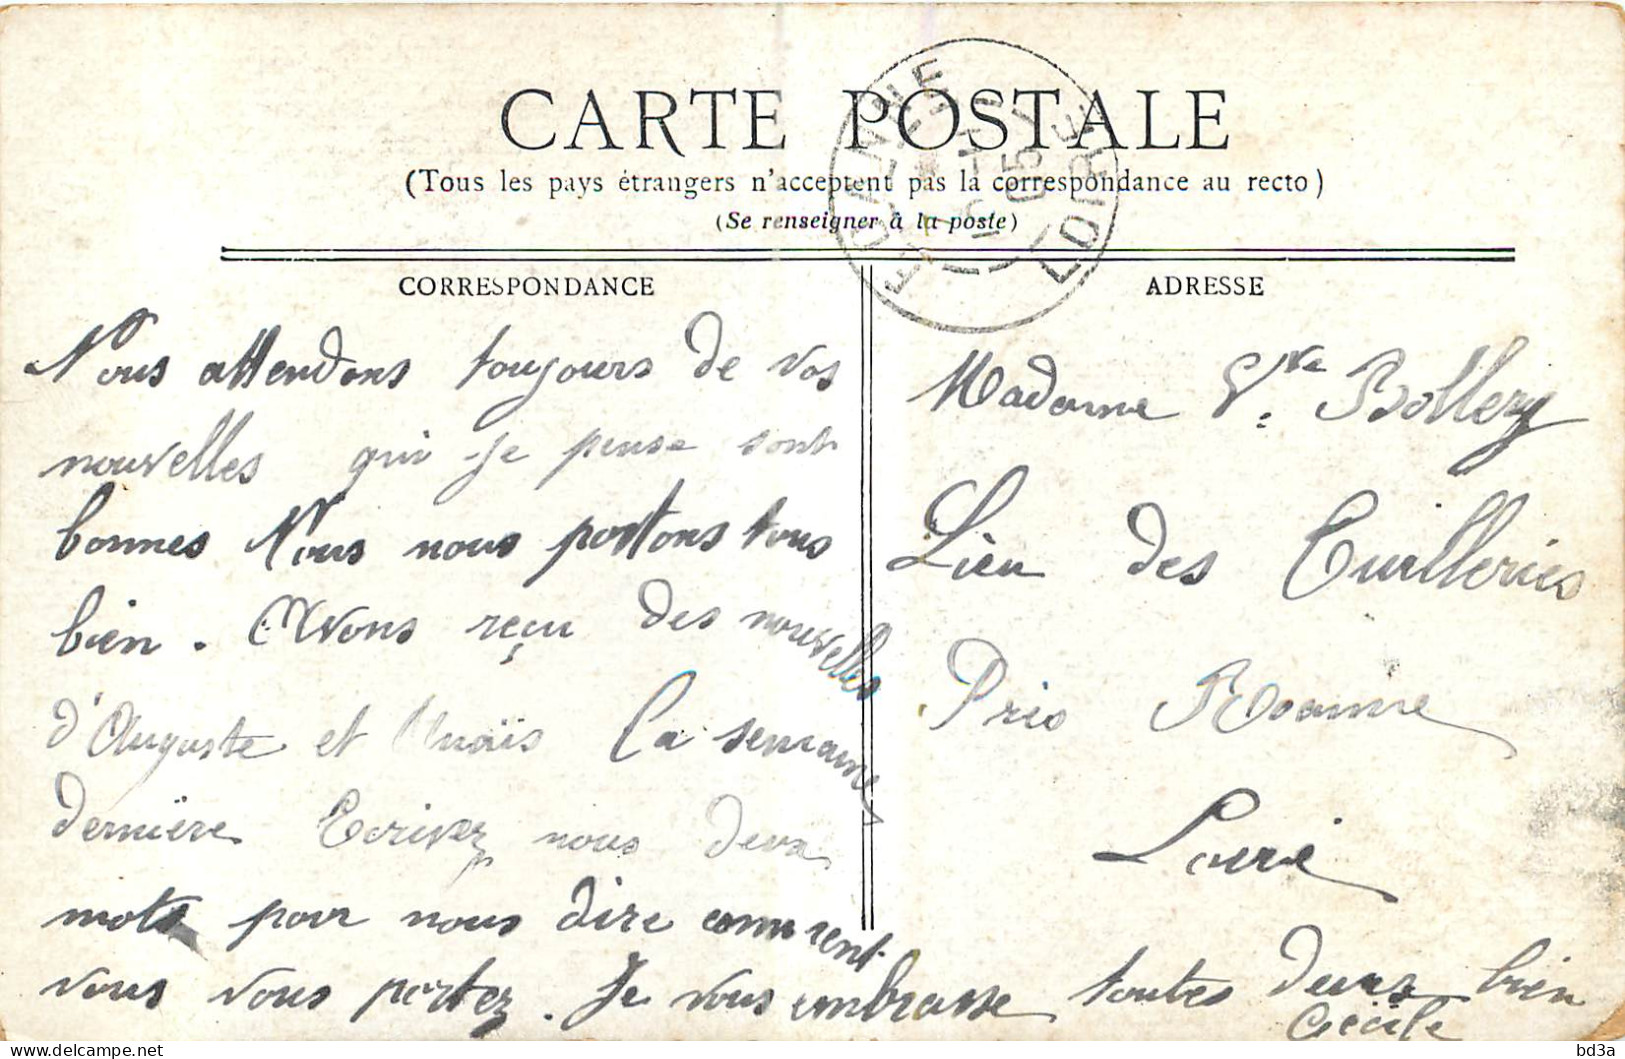 CARTE POSTALE
(Tous les pays étrangers n'acceptent pas la correspondance au recto)
(Se renseigner à la poste)
CORRESPONDANCE
Nous attendons toujours de vos
nouvelles qui je pense sont
bonnes Nous nous portons tous
bien. Avons reçu des nouvelles
d'Auguste et Anaïs la semaine
dernière Ecrivez nous deux
mots pour nous dire comment
vous vous portez. Je vous embrasse toutes deux bien
Cécile
ADRESSE
Madame Vve Bollery
Lieu des Tuilleries
Près Roanne
Loire
ROANNE
LOIRE
05
bd3a